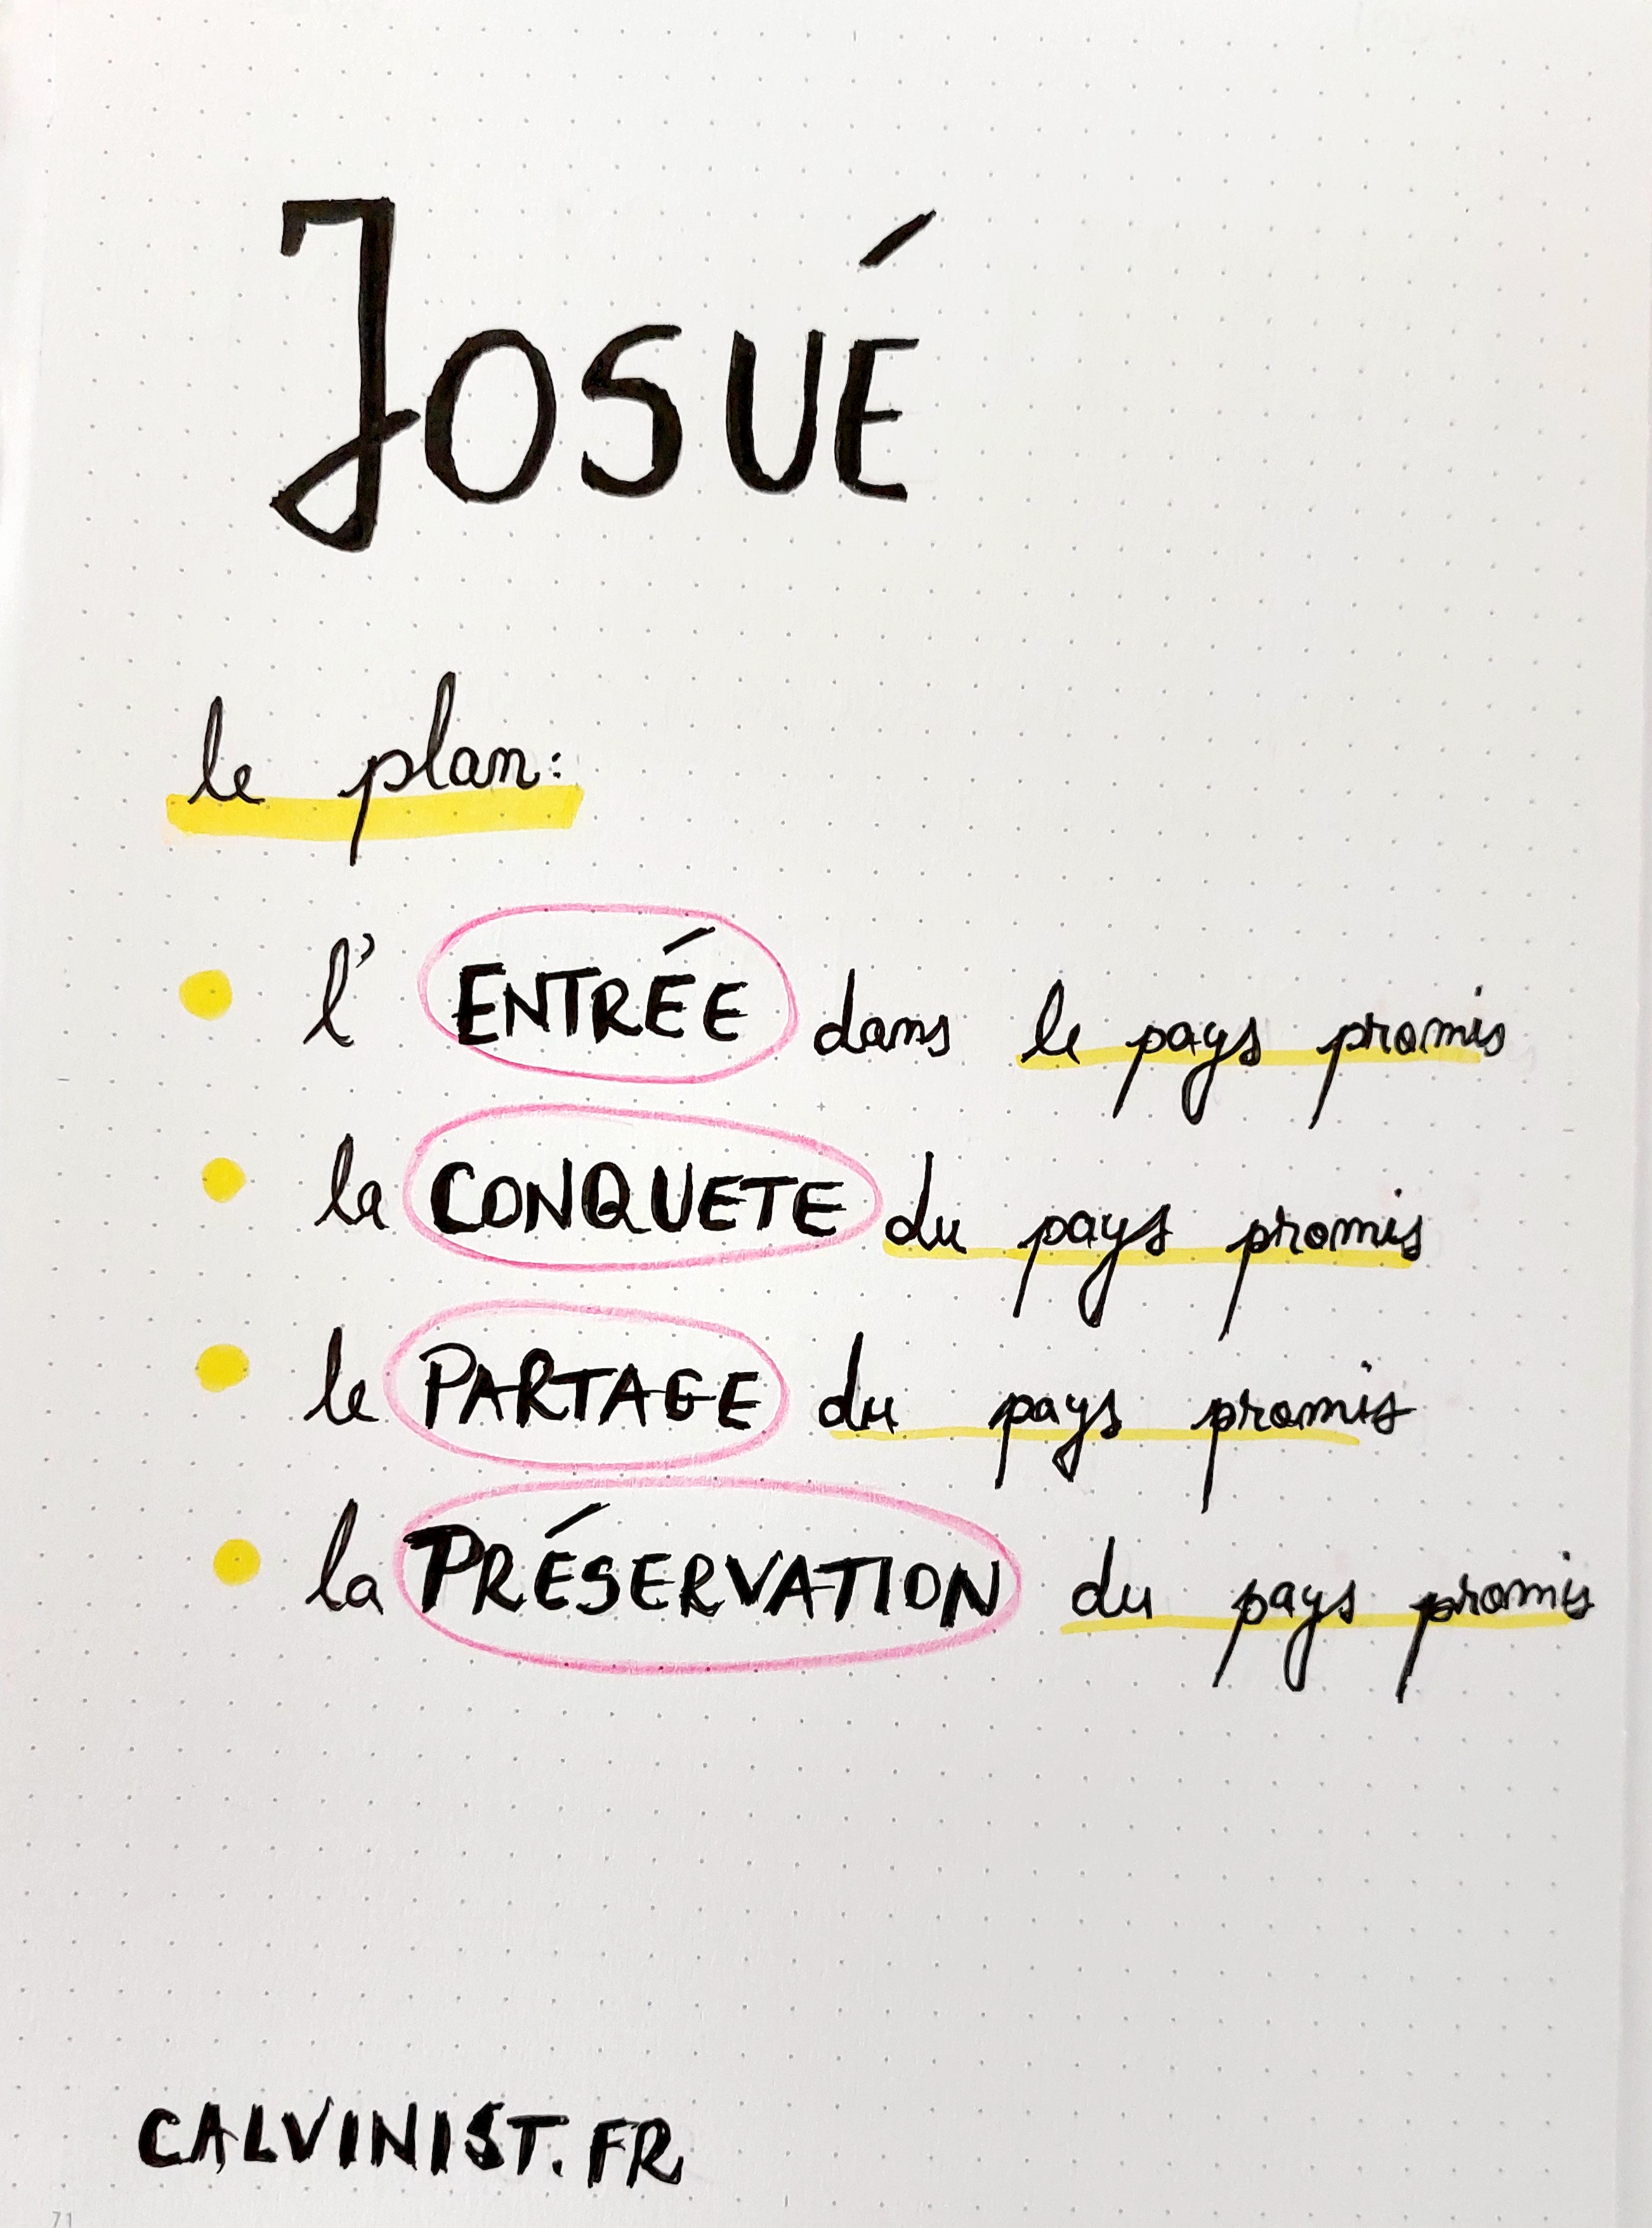 JOSUÉ
le plan:
l' ENTRÉE dans le pays promis
la CONQUETE du pays promis
le PARTAGE du pays promis
la PRÉSERVATION du pays promis
CALVINIST.FR
71